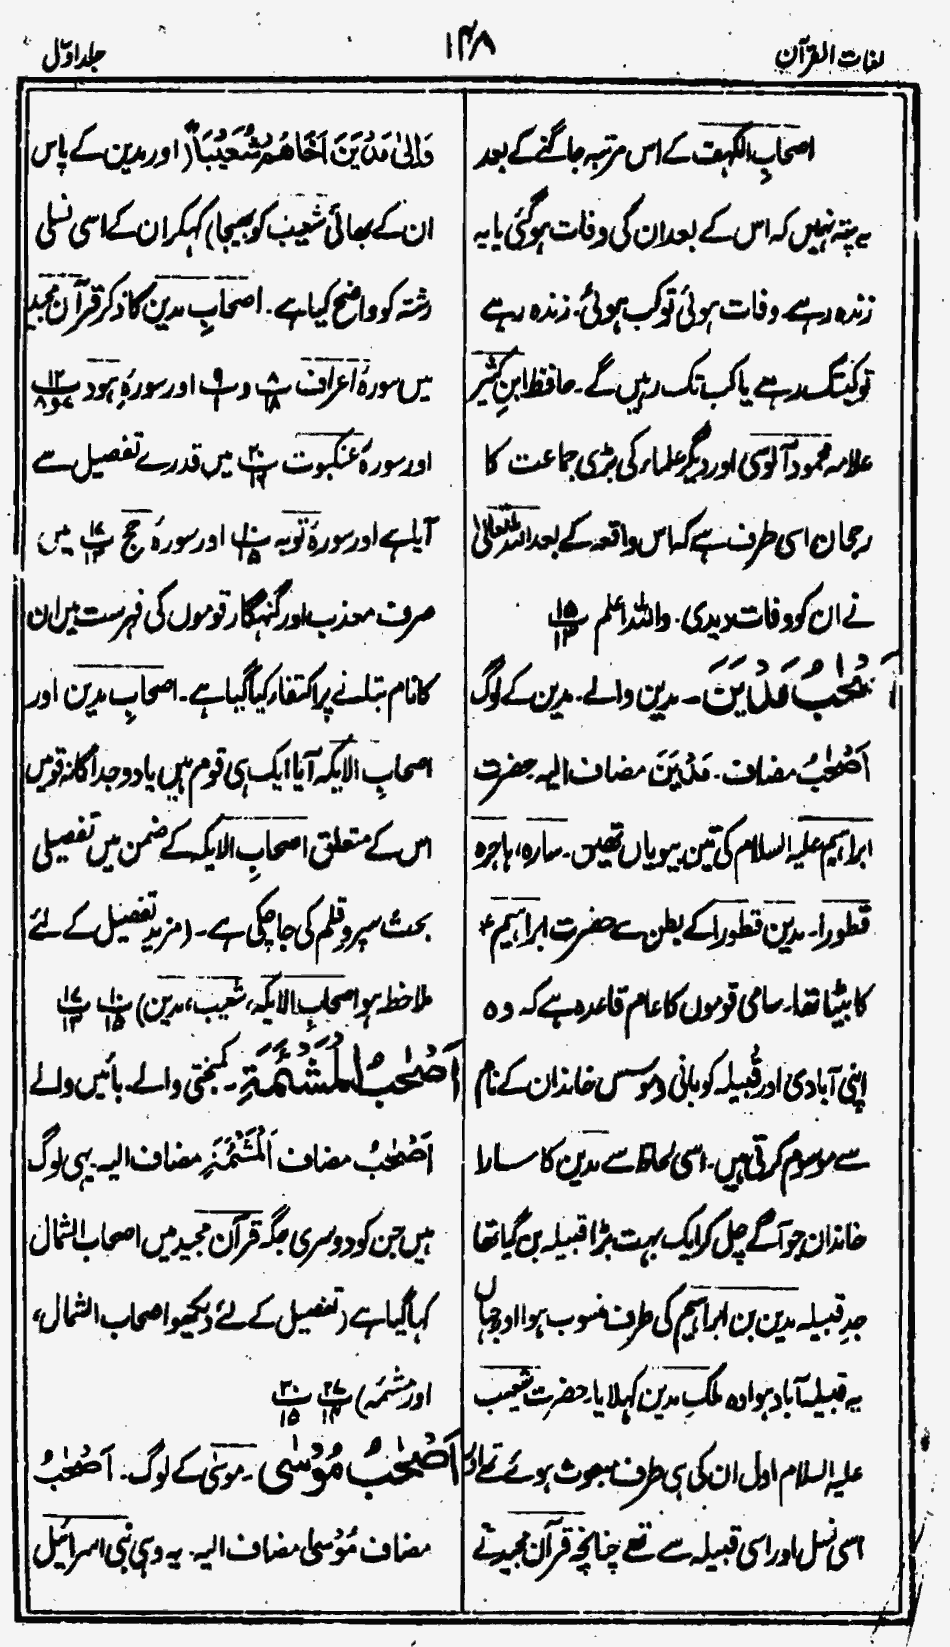 لغات القرآن
۱۴۸
جلد اوّل
اصحابِ الکہف کے اس مرتبہ جاگنے کے بعد
یہ پتہ نہیں کہ اس کے بعد ان کی وفات ہوگئی یا یہ
زندہ رہے۔ وفات ہوئی تو کب ہوئی۔ زندہ رہے
تو کبتک رہے یا کب تک رہیں گے۔ حافظ ابنِ کثیر
علامہ محمود آلوسی اور دیگر علماء کی بڑی جماعت کا
رجحان اسی طرف ہے کہ اس واقعہ کے بعد اللہ تعالیٰ
نے ان کو وفات دیدی۔ واللہ اعلم ۱۵/۱۳
اَصْحٰبُ مَدْیَنَ۔ مدین والے۔ مدین کے لوگ
اَصْحٰبُ مضاف۔ مَدْیَنَ مضاف الیہ حضرت
ابراہیم علیہ السلام کی تین بیویاں تھیں۔ سارہ، ہاجرہ
قطورا۔ مدین قطورا کے بطن سے حضرت ابراہیمؑ
کا بیٹا تھا۔ سامی قوموں کا عام قاعدہ ہے کہ وہ
اپنی آبادی اور قبیلہ کو بانی و موسس خاندان کے نام
سے موسوم کرتی ہیں۔ اسی لحاظ سے مدین کا سارا
خاندان جو آگے چل کر ایک بہت بڑا قبیلہ بن گیا تھا
جدِ قبیلہ مدین بن ابراہیم کی طرف منسوب ہوا اور جہاں
یہ قبیلہ آباد ہوا وہ ملکِ مدین کہلایا۔ حضرت شعیب
علیہ السلام اول ان کی ہی طرف مبعوث ہوئے تھے اور
اسی نسل اور اسی قبیلہ سے تھے چنانچہ قرآن مجید نے
وَاِلیٰ مَدْیَنَ اَخَاھُمْ شُعَیْبًا (اور مدین کے پاس
ان کے بھائی شعیب کو بھیجا) کہکر ان کے اسی نسلی
رشتہ کو واضح کیا ہے۔ اصحابِ مدین کا ذکر قرآن مجید
میں سورۂ اعراف ۸/۱۸ و ۹/۱ اور سورۂ ہود ۱۲/۷و۸
اور سورۂ عنکبوت ۲۰/۱۶ میں قدرے تفصیل سے
آیا ہے اور سورۂ توبہ ۱۰/۱۵ اور سورۂ حج ۱۷/۱۳ میں
صرف معذب اور گنہگار قوموں کی فہرست میں ان
کا نام بتلانے پر اکتفاء کیا گیا ہے۔ اصحابِ مدین اور
اصحابِ الایکہ آیا ایک ہی قوم ہیں یا دو جداگانہ قومیں
اس کے متعلق اصحابِ الایکہ کے ضمن میں تفصیلی
بحث سپرد قلم کی جا چکی ہے۔ (مزید تفصیل کے لئے
ملاحظہ ہو اصحابِ الایکہ، شعیب، مدین) ۱۰/۱۵ ۱۷/۱۳
اَصْحٰبُ الْمَشْئَمَۃِ۔ کمبختی والے۔ بائیں والے
اَصْحٰبُ مضاف اَلْمَشْئَمَۃِ مضاف الیہ یہی لوگ
ہیں جن کو دوسری جگہ قرآن مجید میں اصحاب الشمال
کہا گیا ہے (تفصیل کے لئے دیکھو اصحاب الشمال،
اور مشئمہ) ۲۷/۱۴ ۳۰/۱۵
اَصْحٰبُ مُوْسٰی۔ موسیٰ کے لوگ۔ اَصْحٰبُ
مضاف مُوْسیٰ مضاف الیہ۔ یہ وہی بنی اسرائیل